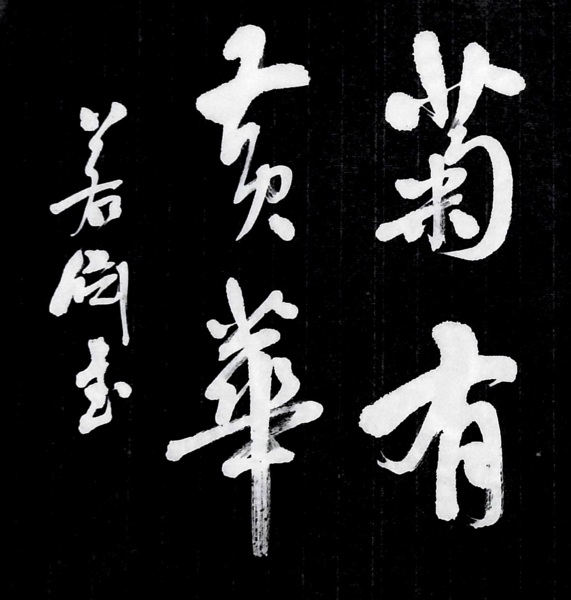 菊有
黄華
若偘書